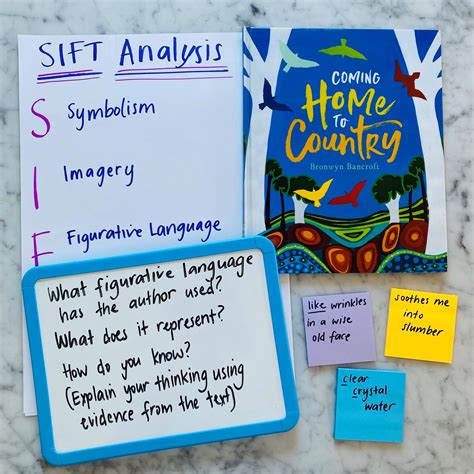 SIFT Analysis
S Symbolism
I Imagery
F Figurative Language
COMING
Home
TO
Country
Bronwyn Bancroft
What figurative language
has the author used?
What does it represent?
How do you know?
(Explain your thinking using
evidence from the text)
like wrinkles
in a wise
old face
soothes me
into
slumber
clear
crystal
water